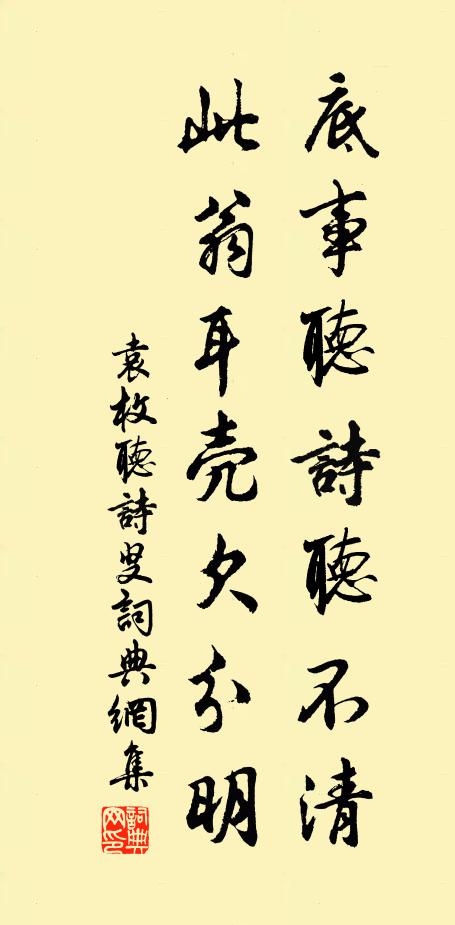 底事聽詩聽不清
此翁耳壳欠分明
袁枚聽詩叟詞典網集
詞典網印